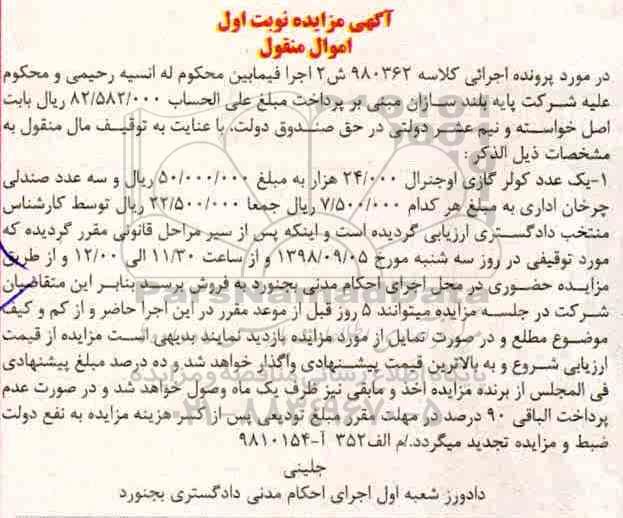 آگهی مزایده نوبت اول
اموال منقول
در مورد پرونده اجرائی کلاسه ۹۸۰۳۶۲ ش۲ اجرا فیمابین محکوم له انسیه رحیمی و محکوم
علیه شرکت پایه بلند سازان مبنی بر پرداخت مبلغ علی الحساب ۸۲/۵۸۲/۰۰۰ ریال بابت
اصل خواسته و نیم عشر دولتی در حق صندوق دولت، با عنایت به توقیف مال منقول به
مشخصات ذیل الذکر :
۱-یک عدد کولر گازی اوجنرال ۲۴/۰۰۰ هزار به مبلغ ۵۰/۰۰۰/۰۰۰ ریال و سه عدد صندلی
چرخان اداری به مبلغ هر کدام ۷/۵۰۰/۰۰۰ ریال جمعا ۲۲/۵۰۰/۰۰۰ ریال توسط کارشناس
منتخب دادگستری ارزیابی گردیده است و اینکه پس از سیر مراحل قانونی مقرر گردیده که
مورد توقیفی در روز سه شنبه مورخ ۱۳۹۸/۰۹/۰۵ و از ساعت ۱۱/۳۰ الی ۱۲/۰۰ و از طریق
مزایده حضوری در محل اجرای احکام مدنی بجنورد به فروش برسد بنابر این متقاضیان
شرکت در جلسه مزایده میتوانند ۵ روز قبل از موعد مقرر در این اجرا حاضر و از کم و کیف
موضوع مطلع و در صورت تمایل از مورد مزایده بازدید نمایند بدیهی است مزایده از قیمت
ارزیابی شروع و به بالاترین قیمت پیشنهادی واگذار خواهد شد و ده درصد مبلغ پیشنهادی
فی المجلس از برنده مزایده اخذ و مابقی نیز ظرف یک ماه وصول خواهد شد و در صورت عدم
پرداخت الباقی ۹۰ درصد در مهلت مقرر مبلغ تودیعی پس از کسر هزینه مزایده به نفع دولت
ضبط و مزایده تجدید میگردد./م الف۳۵۲ آ-۹۸۱۰۱۵۴
جلینی
دادورز شعبه اول اجرای احکام مدنی دادگستری بجنورد
ParsNamadData